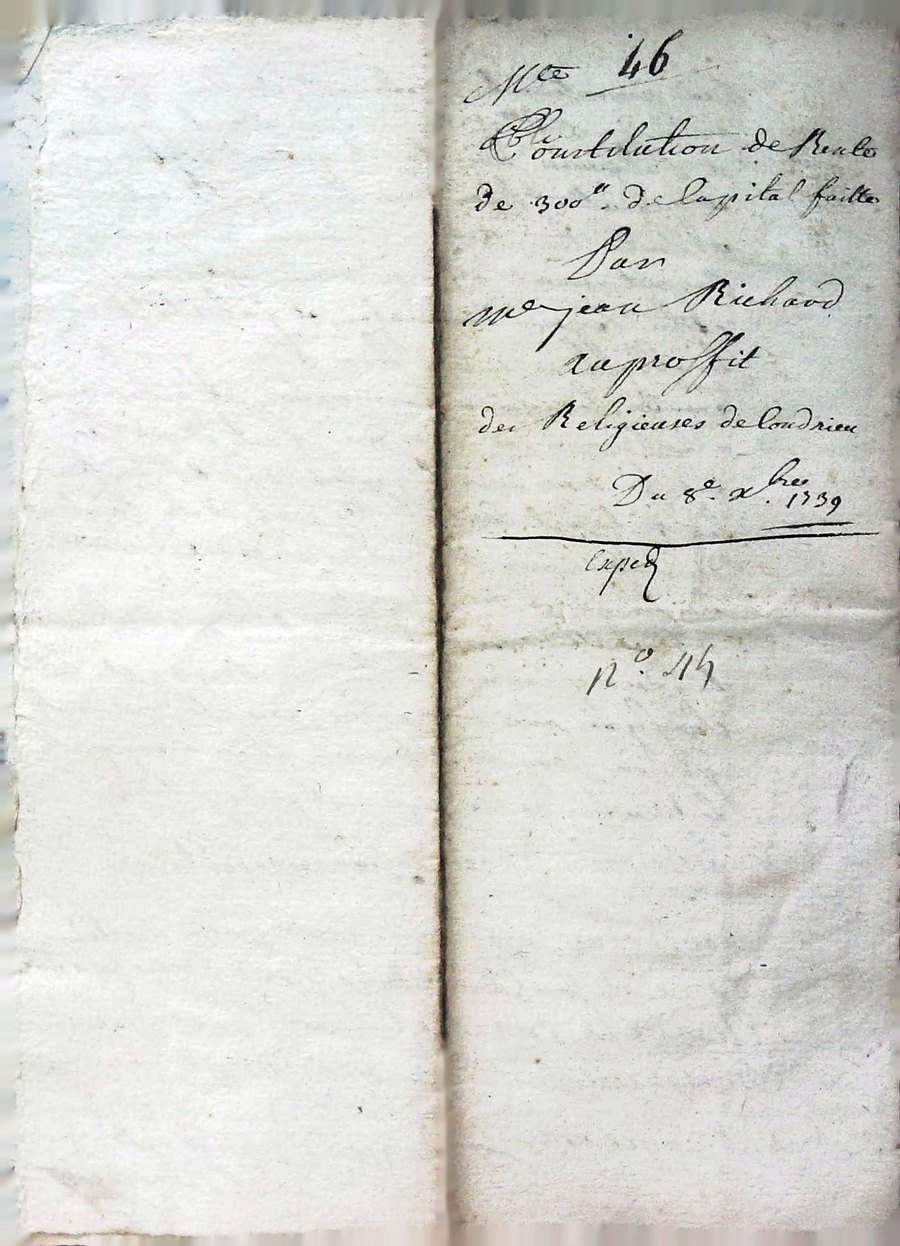 Mte 46
Constitution de Rente
de 300# de Capital faitte
Par
Me jean Richard
au proffit
des Religieuses de Condrieu
Du 8e. xbre 1739
Exped
no. 44